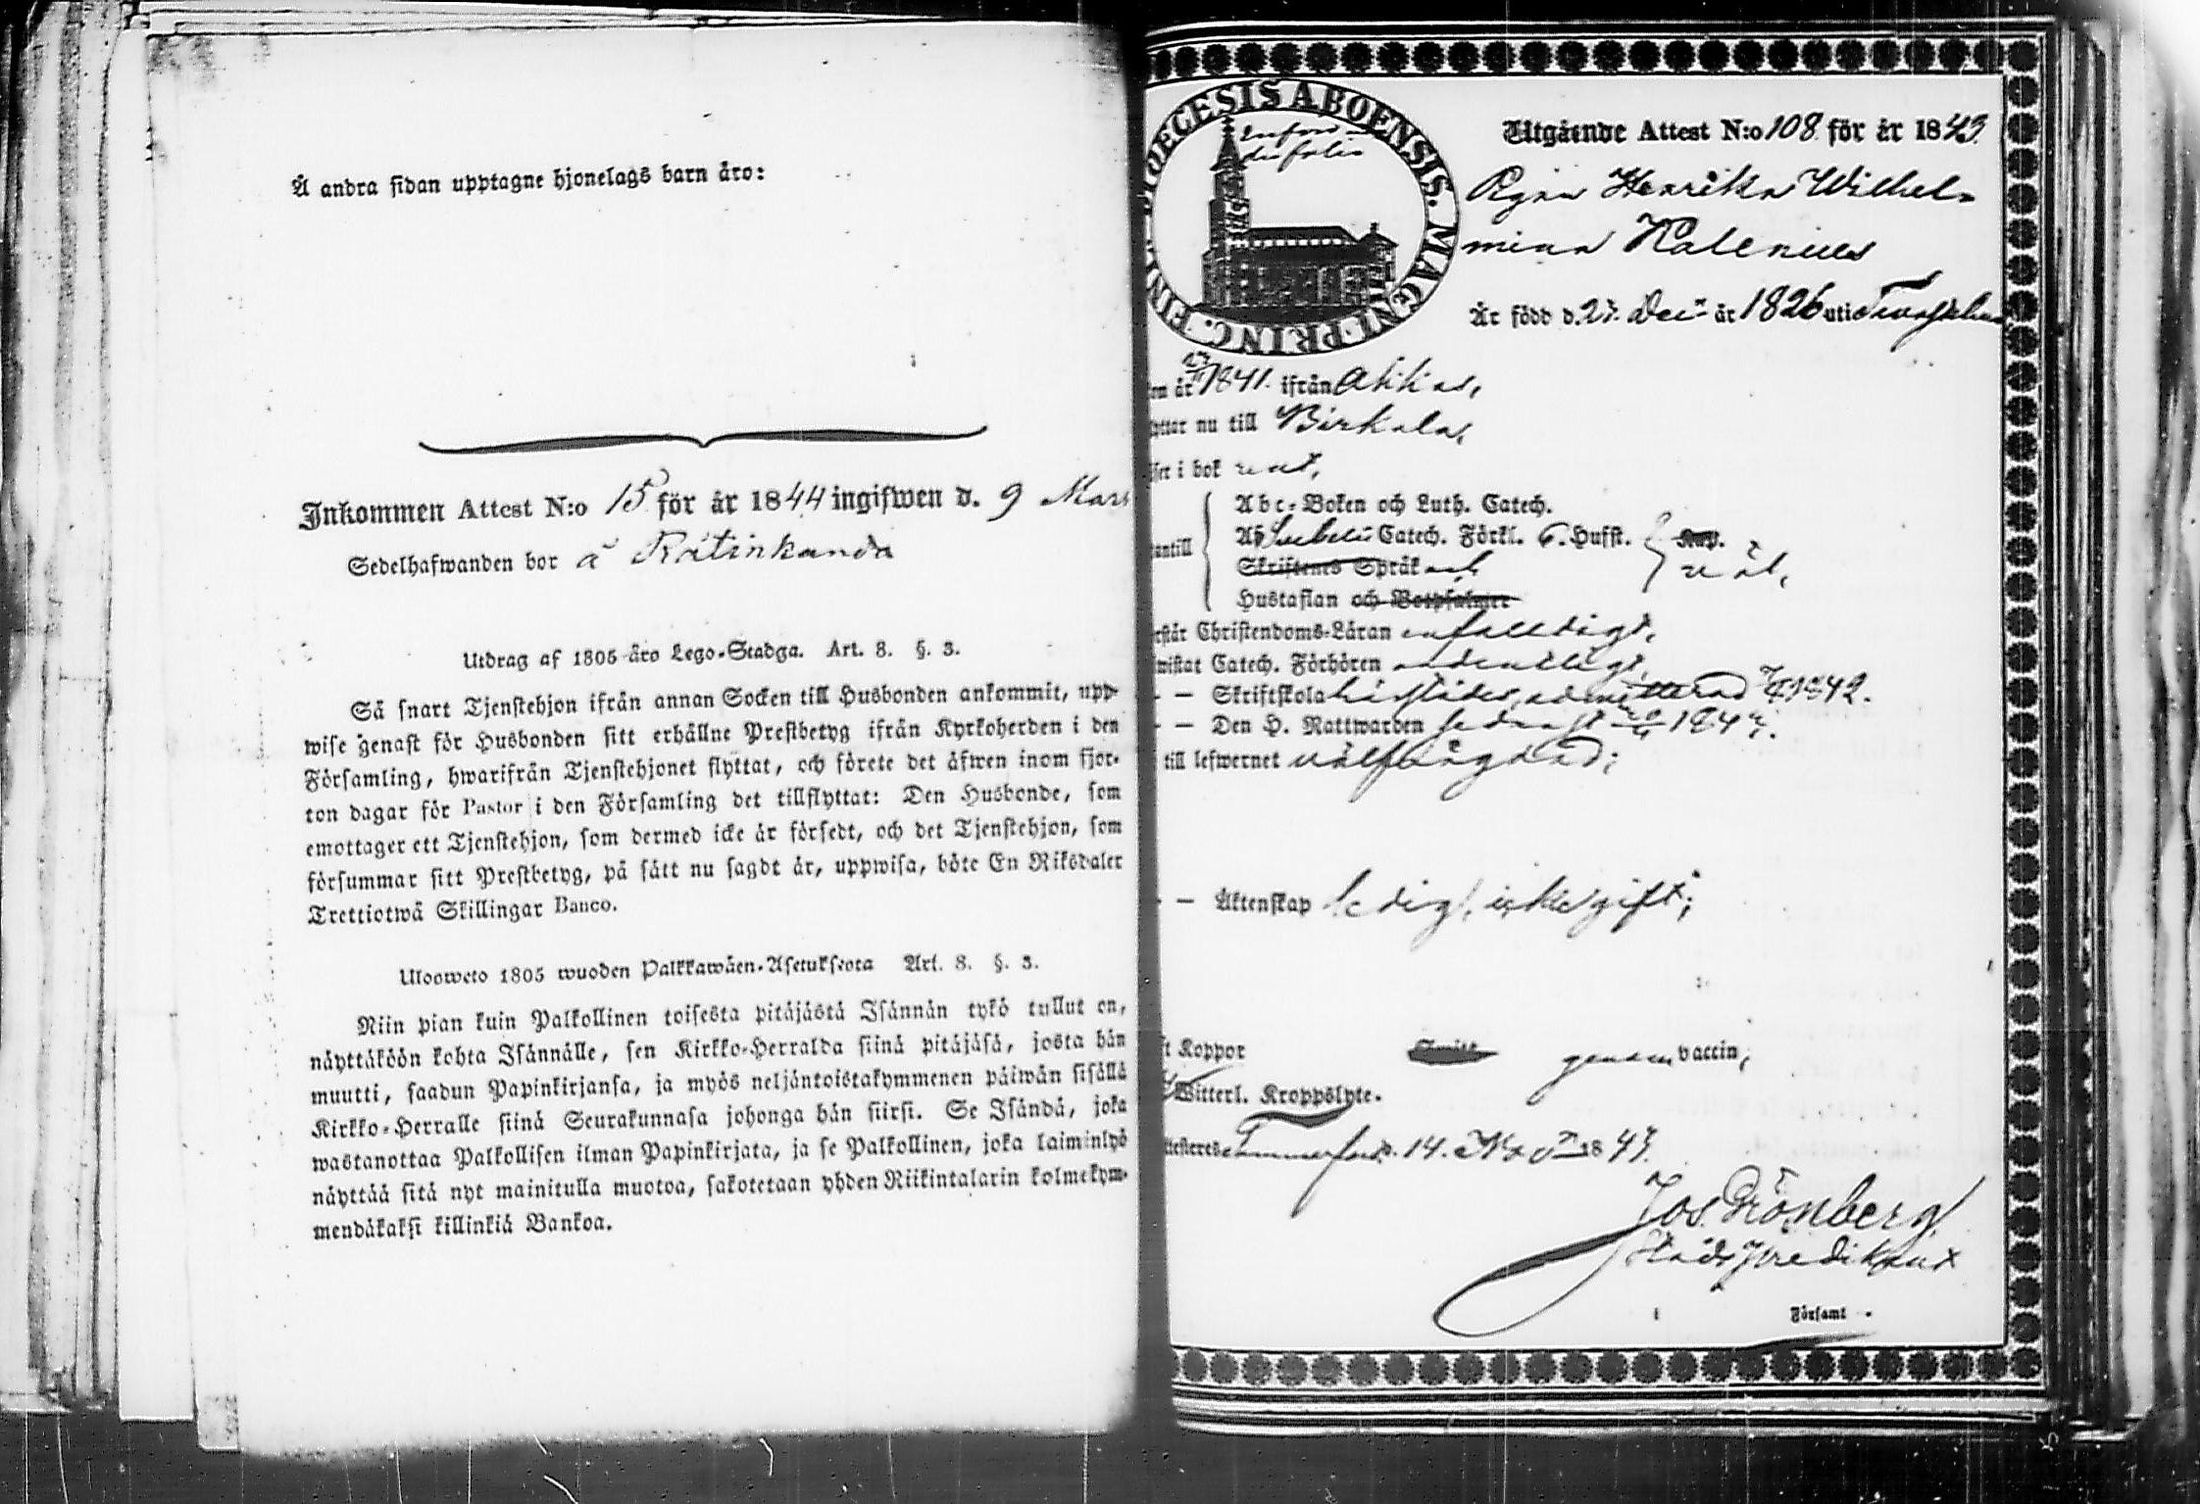 Å andra sidan upptagne hjonelags barn äro:
Inkommen Attest N:o 15 för år 1844 ingifwen d. 9 Mars
Sedelhafwanden bor å
Utdrag af 1805 års Lego-Stadga. Art. 8. §. 3.
Så snart Tjenstehjon ifrån annan Socken till Husbonden ankommit, upp-
wise genast för Husbonden sitt erhållne Prestbetyg ifrån Kyrkoherden i den
Församling, hwarifrån Tjenstehjonet flyttat, och förete det äfwen inom fjor-
ton dagar för Pastor i den Församling det tillflyttat: Den Husbonde, som
emottager ett Tjenstehjon, som dermed icke är försedt, och det Tjenstehjon, som
försummar sitt Prestbetyg, på sätt nu sagdt är, uppwisa, böte En Riksdaler
Trettiotwå Skillingar Banco.
Ulosweto 1805 wuoden Palkkawäen-Asetuksesta Art. 8. §. 3.
Niin pian kuin Palkollinen toisesta pitäjästä Isännän tykö tullut on,
näyttäköön kohta Isännälle, sen Kirkko-Herralda siinä pitäjäsä, josta hän
muutti, saadun Papinkirjansa, ja myös neljäntoistakymmenen päiwän sisällä
Kirkko-Herralle siinä Seurakunnasa johonga hän siirsi. Se Isändä, joka
wastanottaa Palkollisen ilman Papinkirjata, ja se Palkollinen, joka laiminlyö
näyttää sitä nyt mainitulla muotoa, sakotetaan yhden Riikintalarin kolmekym-
mendäkaksi killinkiä Bankoa.
DIOECESIS ABOENSIS. MAGNI PRINC. FINL.
Utgående Attest N:o 108 för år 1843
Pigan Henrika Wilhel-
mina Kalenius
Är född d. 27 Dec:r år 1826 uti
om år 1841. ifrån Akkas,
yttar nu till Birkala,
ser i bok wäl,
Abc-Boken och Luth. Catech.
Catech. Förkl. 6. Hufst. Kap.
Skriftenes Språk och wäl,
Hustaflan och Botpsalmer
rstår Christendoms-Läran enfaldigt,
wistat Catech. Förhören ordentligt,
— — Skriftskola härstädes, admitterad 1842.
— — Den H. Nattwarden sednast 1843.
till lefwernet wälfrägdad;
— — Äktenskap ledig, icke gift;
t Koppor genom vaccin;
Witterl. Kroppslyte.
ttesteres Tammerfors d. 14. Nov:r 1843.
Jos. Grönberg
Stads Predikant
i Församl.